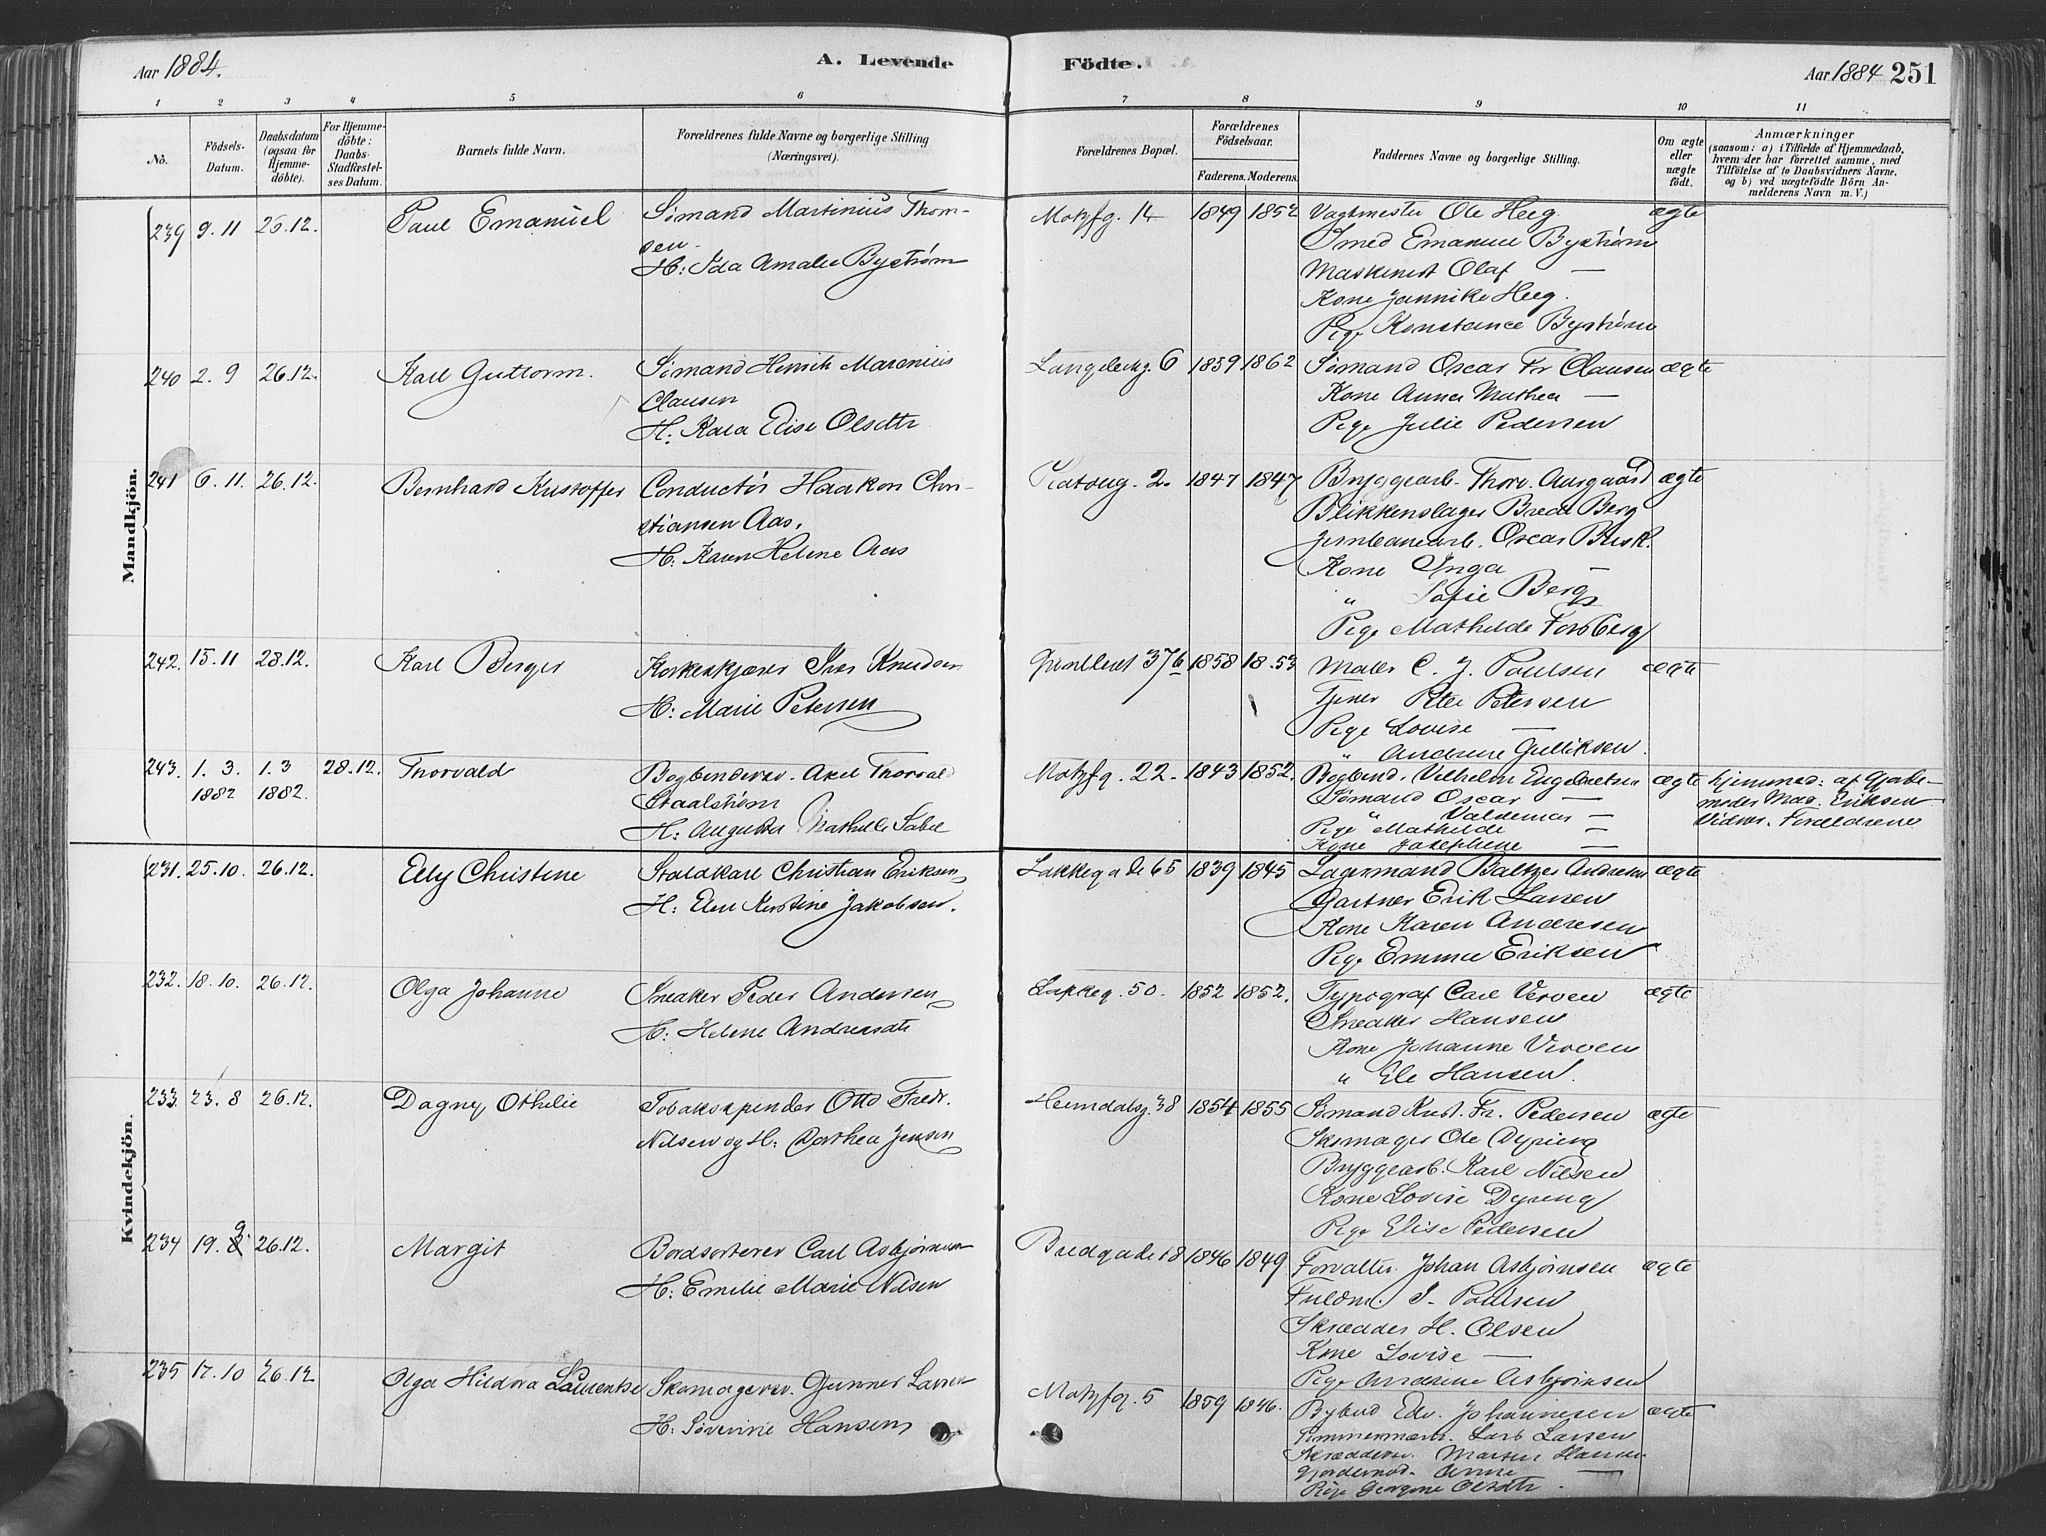 Aar 1884.
A. Levende
Födte.
Aar 1884 251
1 2 3 4 5 6 7 8 9 10 11
No.
Födsels-
Datum.
Daabsdatum
(ogsaa for
Hjemme-
döbte).
For Hjemme-
döbte:
Daabs-
Stadfæstel-
ses Datum.
Barnets fulde Navn.
Forældrenes fulde Navne og borgerlige Stilling
(Næringsvei).
Forældrenes Bopæl.
Forældrenes
Födselsaar.
Faderens. Moderens.
Faddernes Navne og borgerlige Stilling.
Om ægte
eller
uægte
födt.
Anmærkninger
(saasom: a) i Tilfælde af Hjemmedaab,
hvem der har forrettet samme, med
Tilföielse af to Daabsvidners Navne,
og b) ved uægtefödte Börn An-
melderens Navn m. V.)
Mandkjön.
239 9.11 26.12. Paul Emanuel
Sömand Martinius Thom-
sen
H: Ida Amalie Bystrøm
Motzfg. 14 1849 1852
Vagtmester Ole Heeg
Smed Emanuel Bystrøm
Maskinist Olaf —
Kone Jannike Heeg.
Pige Konstance Bystrøm
ægte
240 2.9 26.12. Karl Guttorm.
Sömand Henrik Marenius
Clausen
H: Kaia Elise Olsdtr
Langleikg. 6 1859 1862
Sømand Oscar Fr Clausen
Kone Anna Mathea —
Pige Julie Pedersen
ægte
241 6.11. 26.12. Bernhard Kristoffer
Conductør Haakon Chri-
stiansen Aas.
H: Karen Helene Aas
Platoug. 2. 1847 1847
Bryggearb. Thorv. Aasgaard
Blikkenslager Brede Berg
Jernbanearb. Oscar Busk.
Kone Inga —
" Sofie Berg
Pige Mathilde Forsberg
ægte
242. 15.11 28.12. Karl Berger
Korkeskjærer Iver Knudsen
H: Marie Petersen
Grønlleret 376 1858 1853
Maler C. J. Paulsen
Tjener Peter Petersen
Pige Lovise —
" Andrine Gulliksen.
ægte
243. 1.3. 1882 1.3 1882. 28.12. Thorvald
Bogbindersv. Axel Thorvald
Staalstrøm
H: Augusta Mathilde Sabel
Motzfg. 22. 1843 1852.
Bogbind. Vilhelm Engebretsen
Sømand Oscar —
" Valdemar —
Pige Mathilde —
Kone Josephine —
ægte
hjemmed: af Gjorde-
moder Mad. Eriksen
Vidner. Forældrene
Kvindekjön.
231. 25.10. 26.12. Elly Christine
Staldkarl Christian Eriksen
H: Elen Kristine Jakobsen.
Lakkegade 65 1839 1845
Lagermand Baltzer Andresen
Gartner Erik Larsen
Kone Karen Andresen
Pige Emma Eriksen
ægte
232. 18.10. 26.12. Olga Johanne
Snedker Peder Andersen
H: Helene Andreasdtr
Lakkeg. 50. 1852 1852.
Typograf Carl Verven
Snedker Hansen
Kone Johanne Verven
" Ele Hansen.
ægte
233. 23.8 26.12. Dagny Othilie
Tobakspinder Otto Fredr.
Nilsen og H: Dorthea Jensen
Heimdalsg. 38 1854 1855
Sømand Krist. Fr. Pedersen
Skomager Ole Dyring
Bryggearb. Karl Nilsen
Kone Lovise Dyring
Pige Elise Pedersen
ægte
234 19.9 26.12. Margit
Bordsorterer Carl Asbjørnsen
H: Emilie Marie Nilsen
Bredgade 18 1846 1849
Forvalter Johan Asbjørnsen
Fuldm. J. Paulsen
Skrædder H. Olsen
Kone Lovise —
Pige Andrine Asbjørnsen
ægte
235 17.10 26.12 Olga Hildora Laurentse
Skomagersv. Gunner Larsen
H: Severine Hansen
Motzfg. 5 1859 1846.
Bybud Edv. Johannesen
Tømmermand. Lars Larsen
Skræddersv. Martin Hansen
Gjordemod. Anne —
Pige Georgine Olsdtr.
ægte